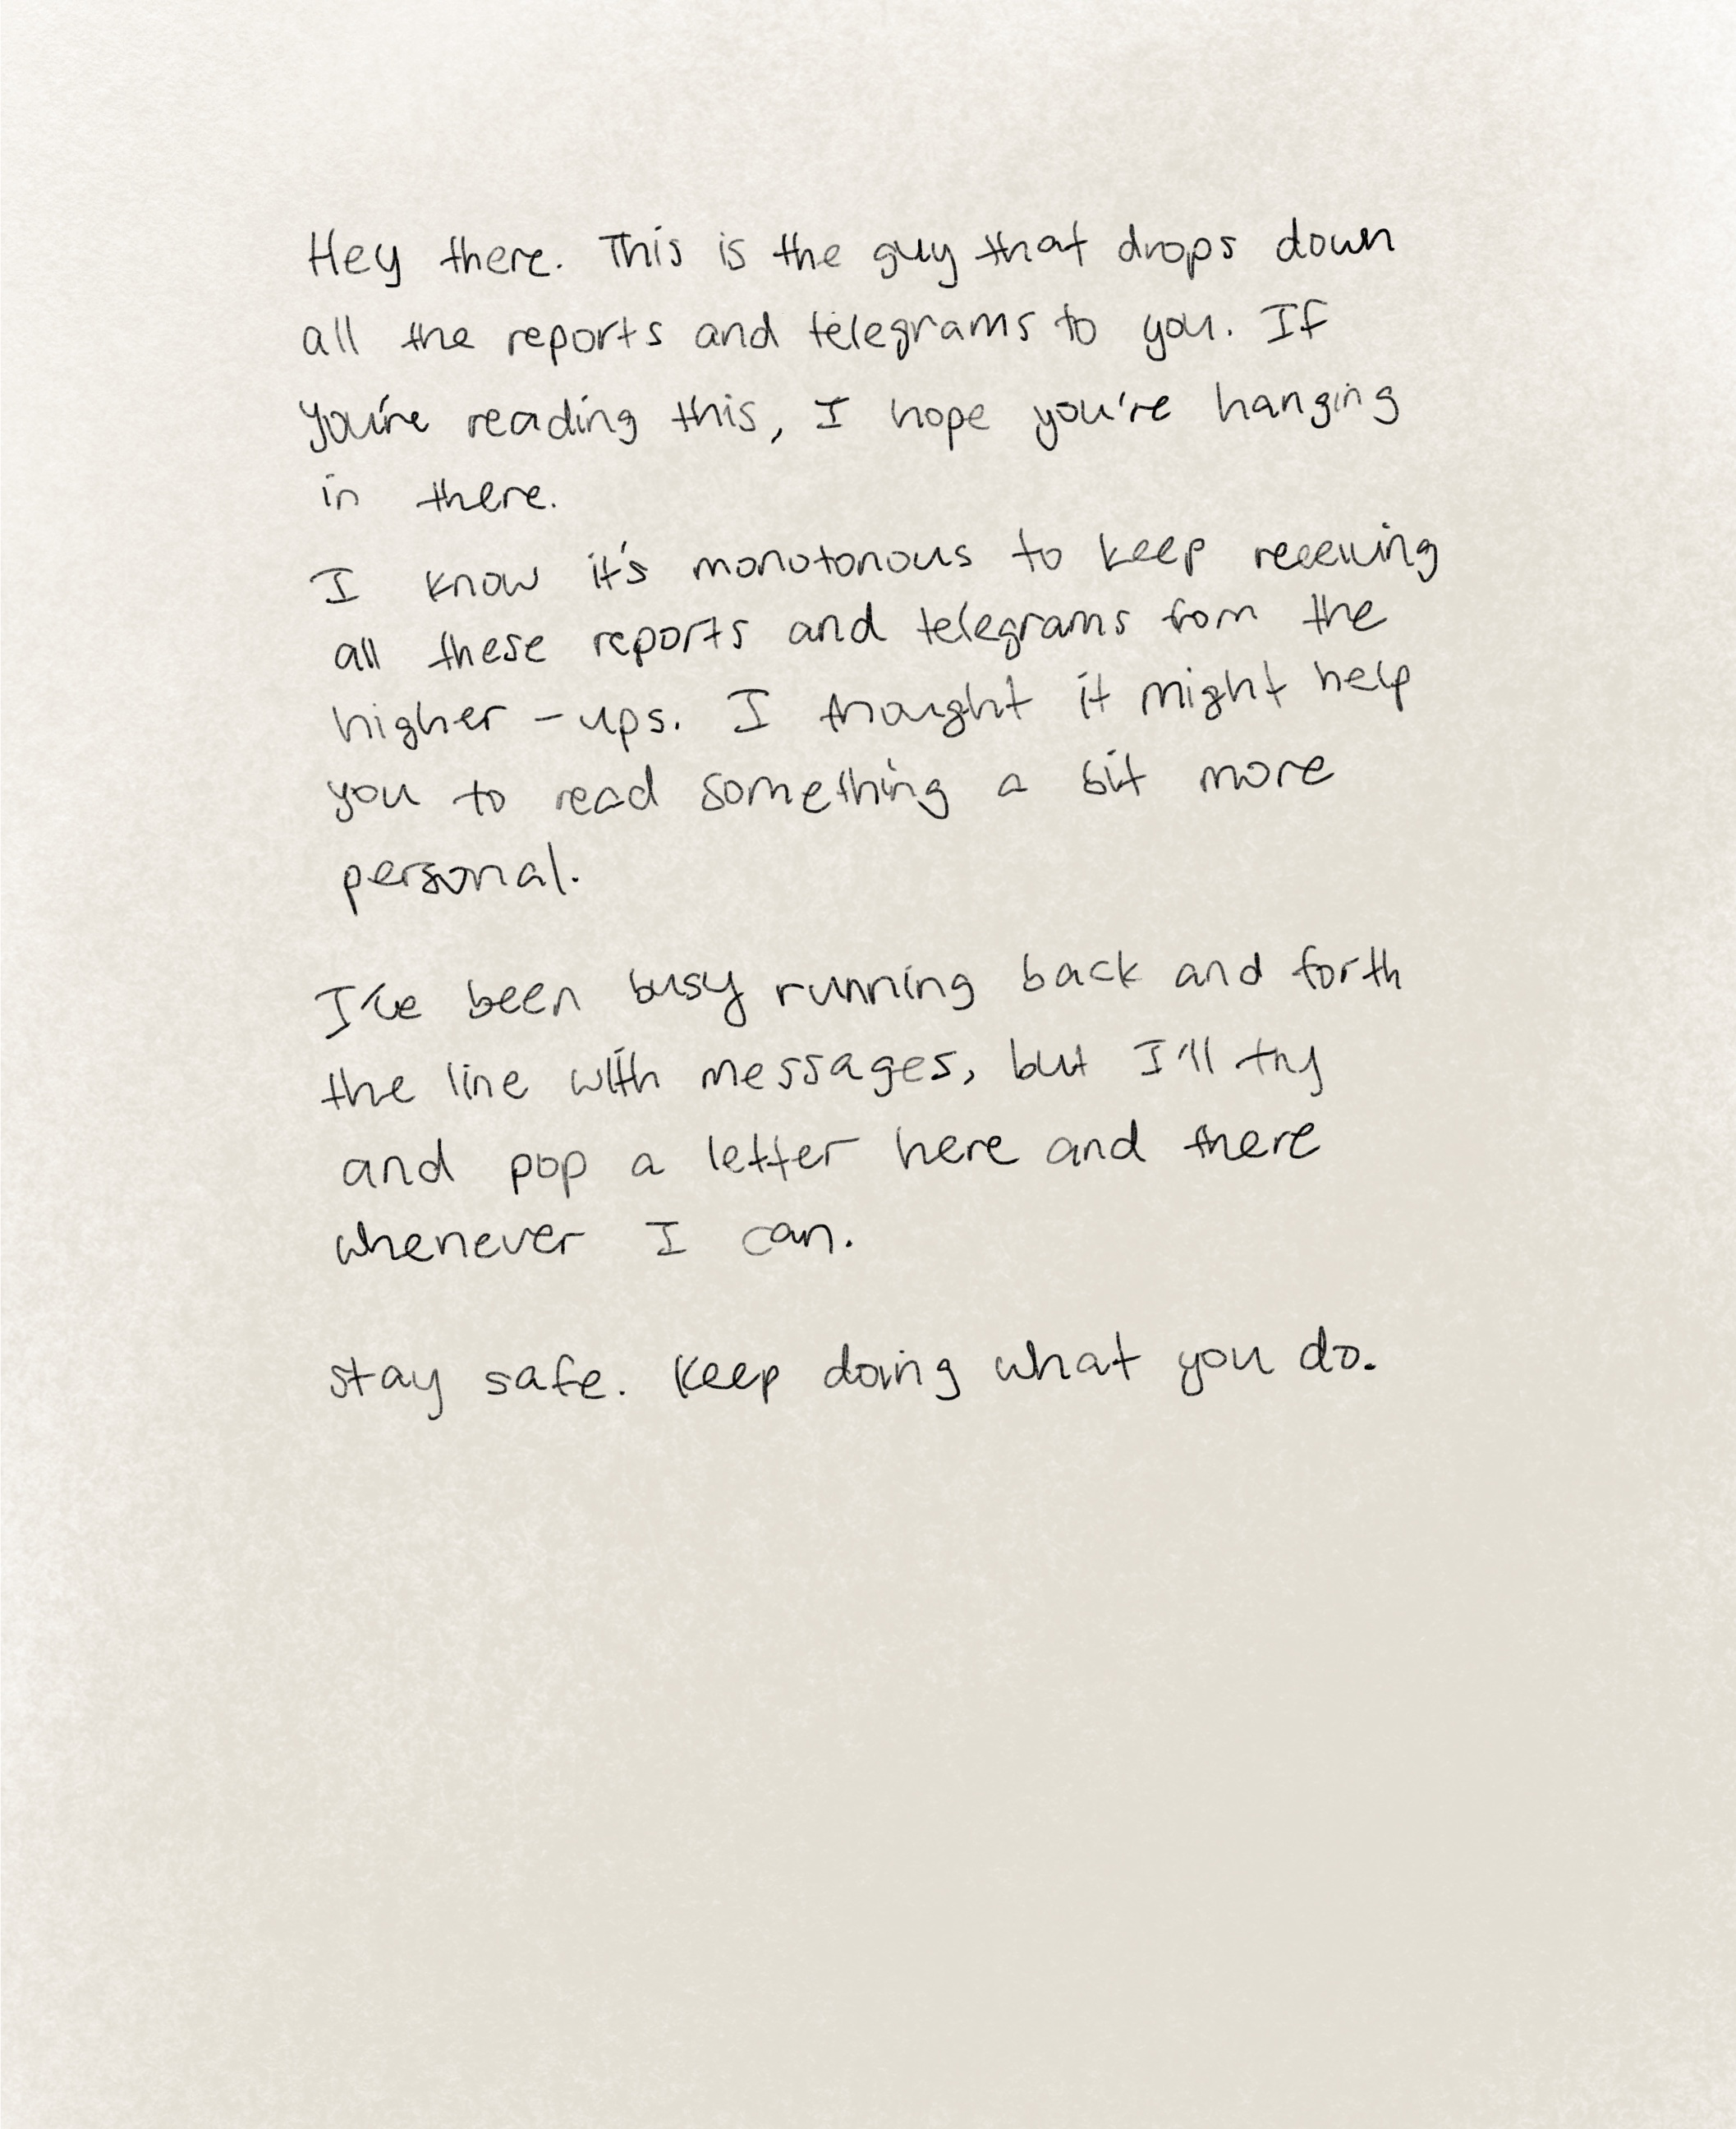 Hey there. This is the guy that drops down
all the reports and telegrams to you. If
you're reading this, I hope you're hanging
in there.
I know it's monotonous to keep receiving
all these reports and telegrams from the
higher-ups. I thought it might help
you to read something a bit more
personal.
I've been busy running back and forth
the line with messages, but I'll try
and pop a letter here and there
whenever I can.
stay safe. Keep doing what you do.